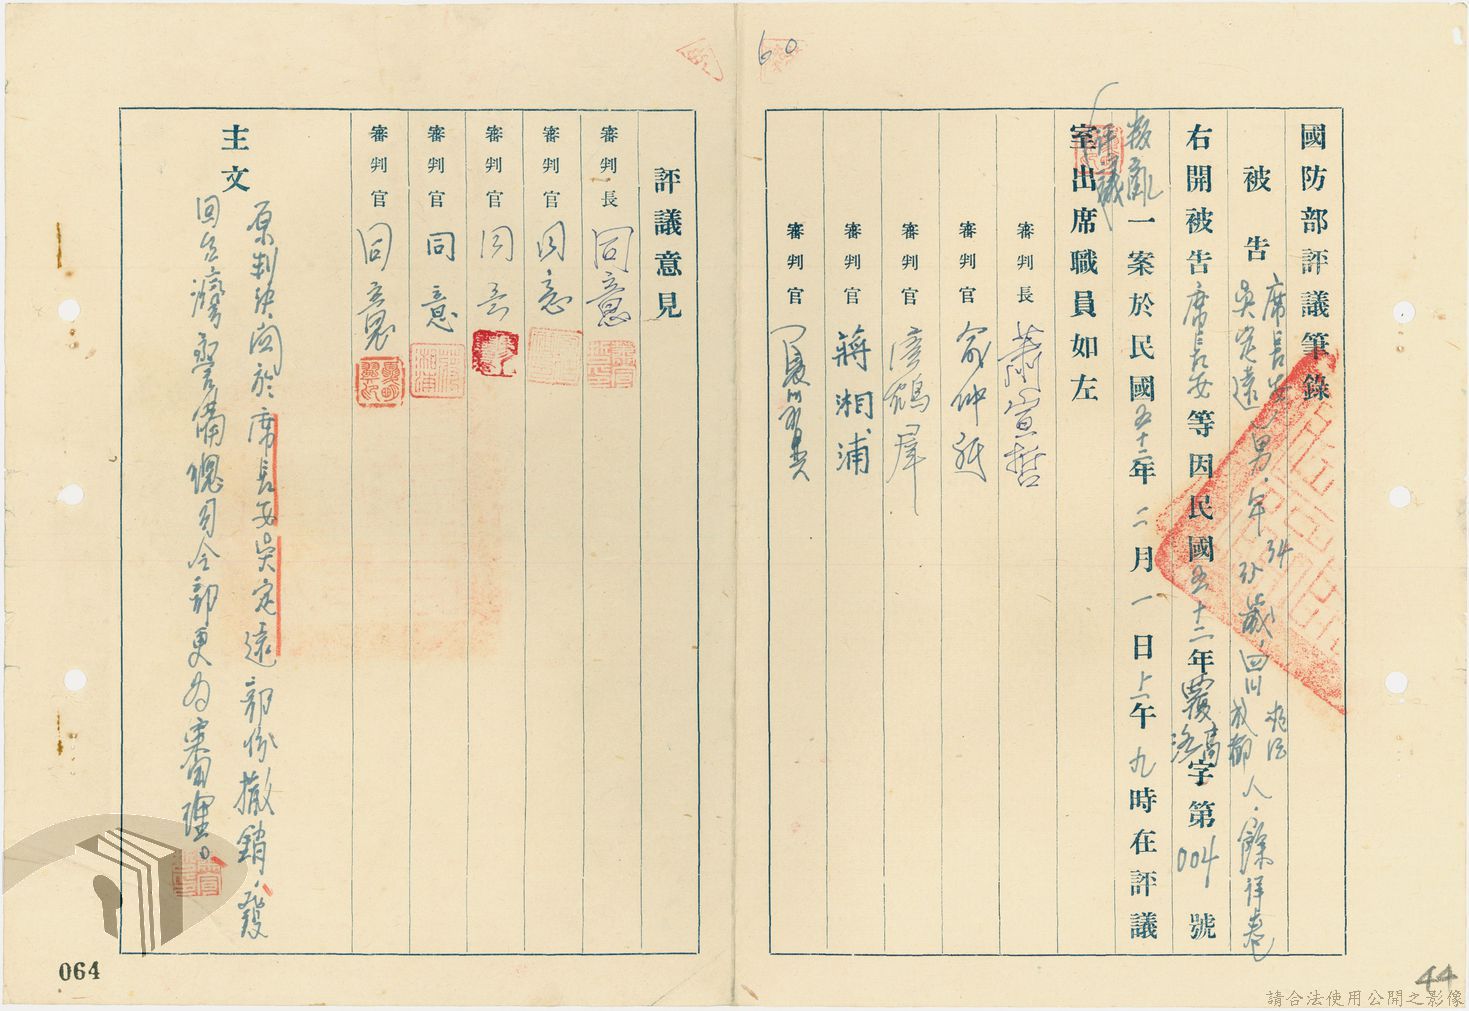 60
國防部評議筆錄
被告 席長安 吳定遠 男．年 34 歲．四川 成都 人．餘詳卷
右開被告席長安等因民國五十二年覆高字第004號
叛亂一案於民國五十二年二月一日上午九時在評議
室出席職員如左
審判長 蕭宣哲
審判官
審判官
審判官 蔣湘浦
審判官
評議意見
審判長 同意
審判官 同意
審判官 同意
審判官 同意
審判官 同意
主文
原判決關於席長安吳定遠部份撤銷．發
回台灣警備總司令部更為審理。
064
44
請合法使用公開之影像